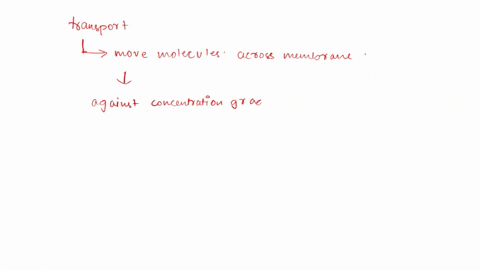 transport
move molecules. across membrane.
against concentration grad